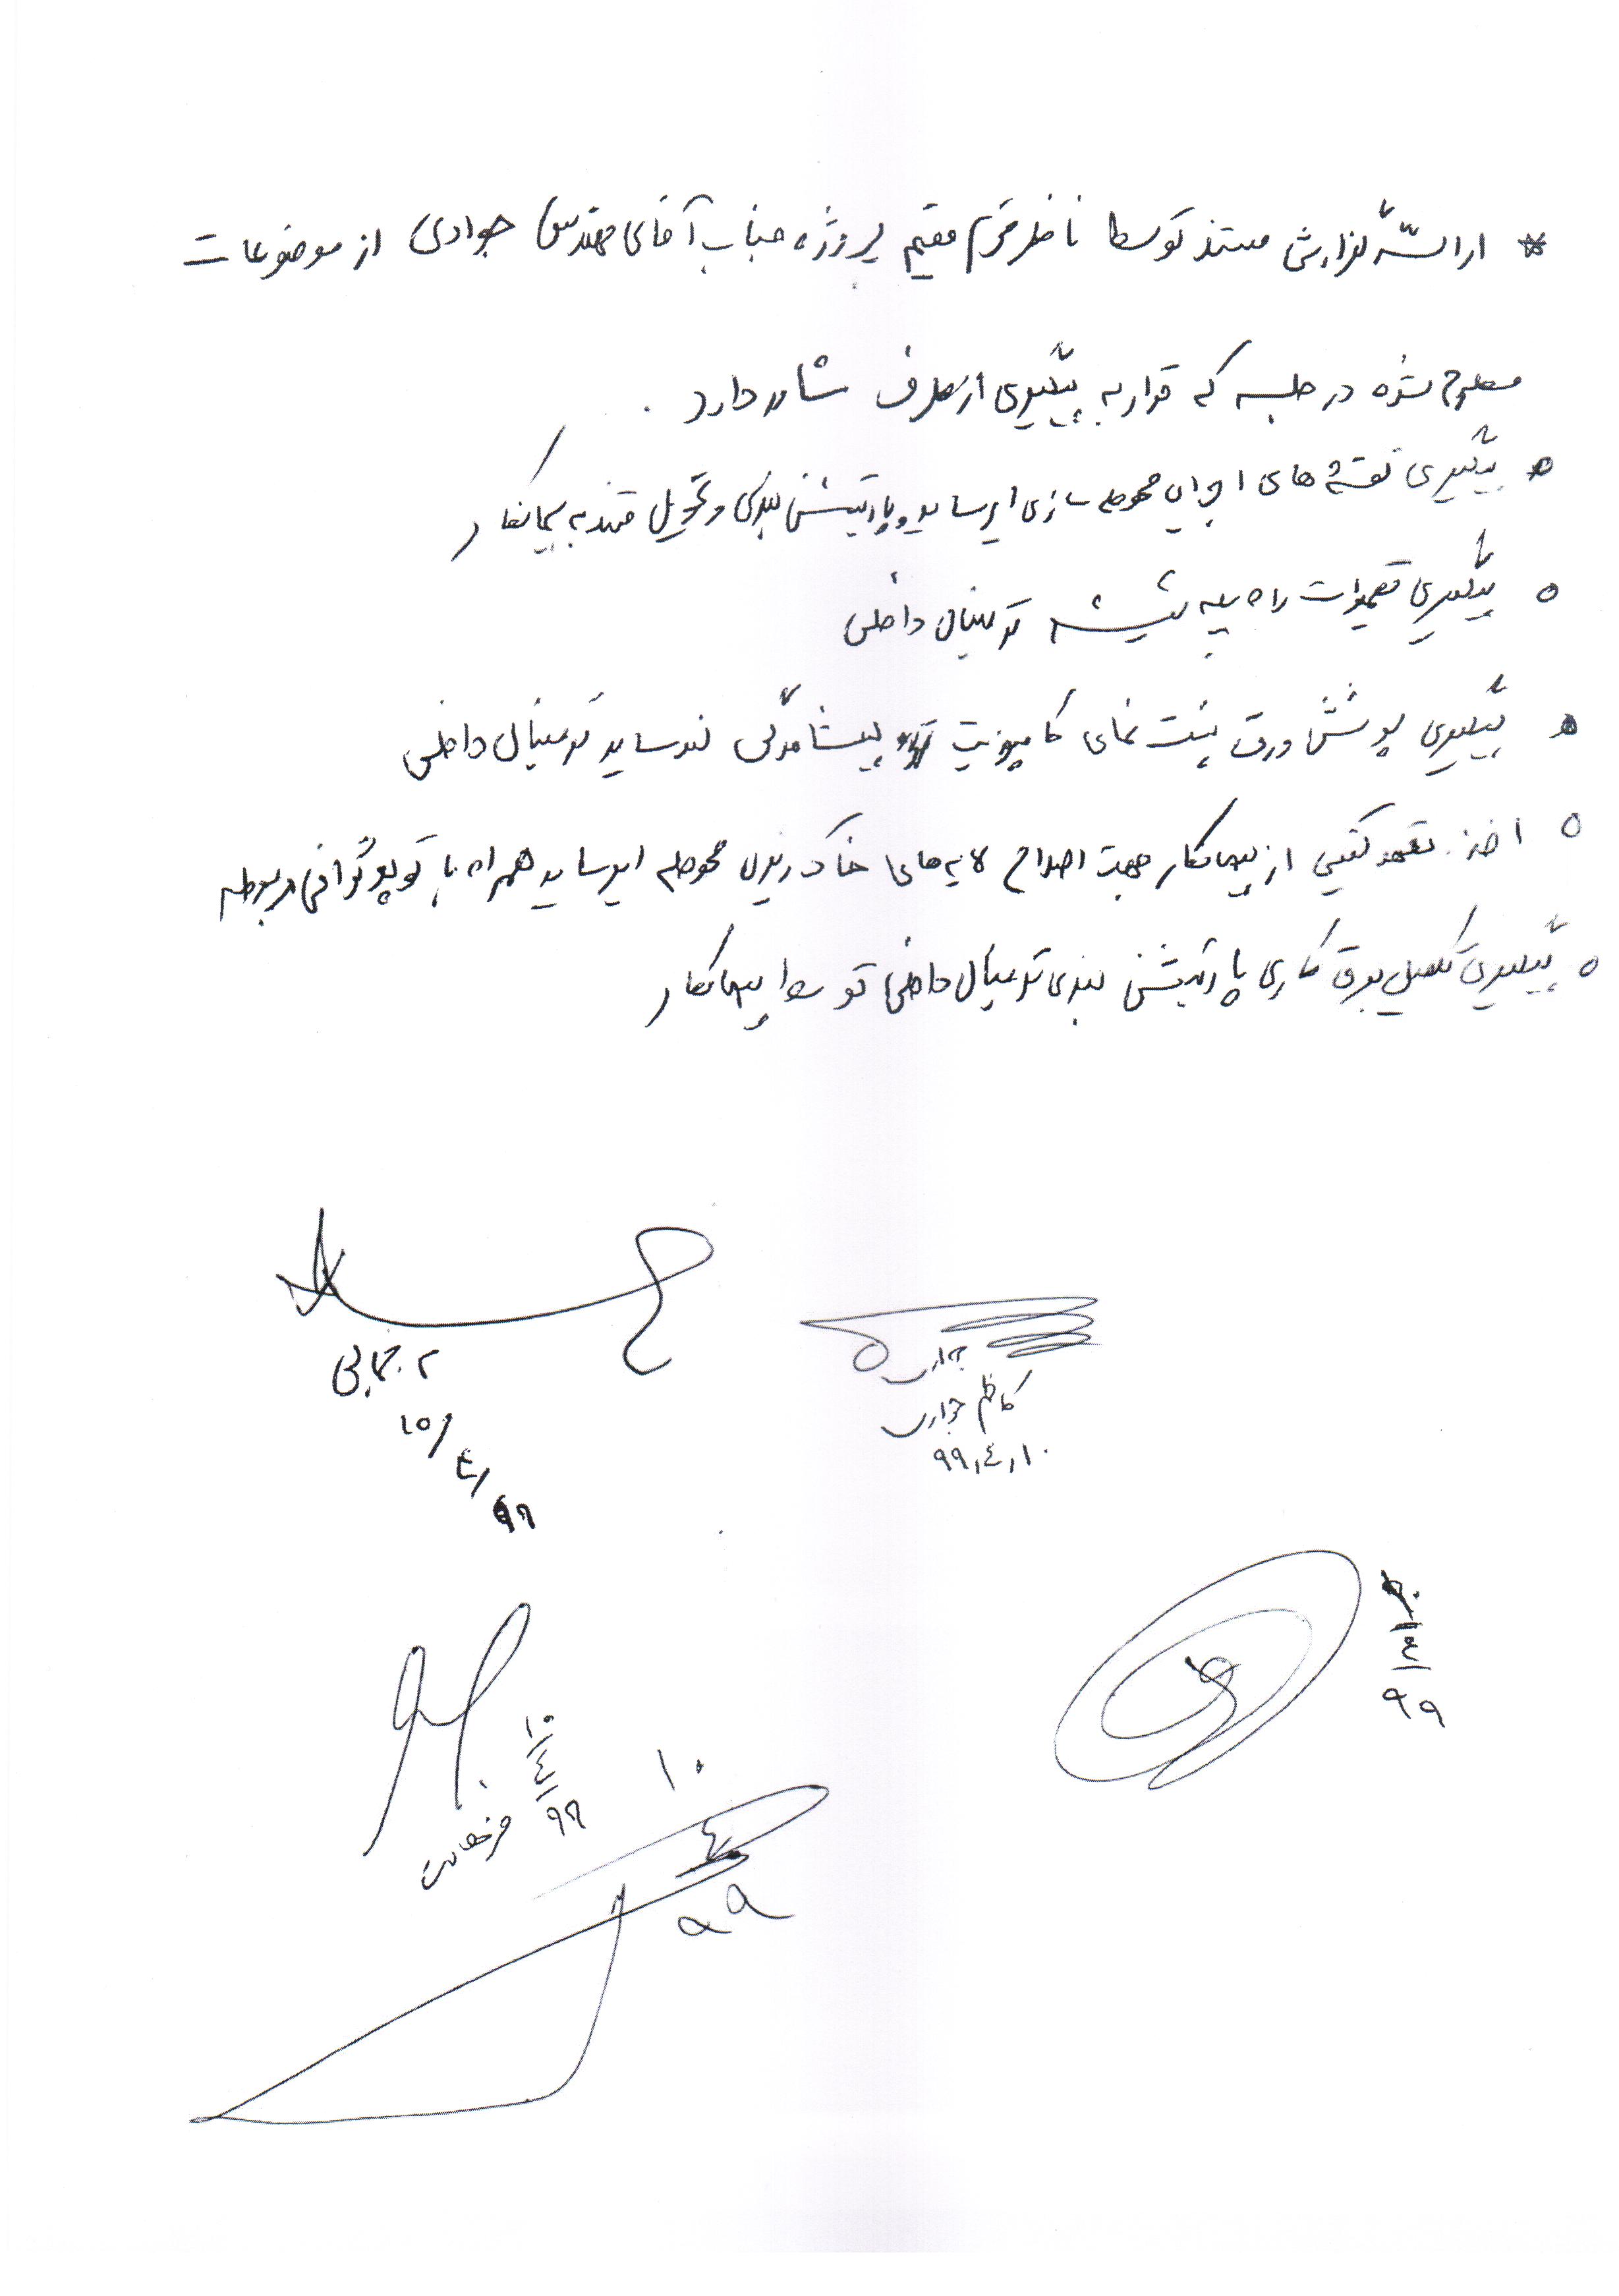 * ارائه گزارش مستند توسط ناظر محترم مقیم پروژه جناب آقای مهندس جوادی از موضوعات
مطرح شده در جلسه که قرار به پیگیری از طرف شاور دارد .
پیگیری نقشه های اجرایی محوطه سازی ایرساید و پارتیشن بندی و تحویل به پیمانکار
پیگیری تعمیرات راه پله شیشه ترمینال داخلی
پیگیری پوشش ورق پشت نمای کامپوزیت پیشامدگی لندساید ترمینال داخلی
اخذ تعهد کتبی از پیمانکار جهت اصلاح لایه های خاکریزی محوطه ایرساید همراه با توپوگرافی مربوطه
پیگیری تکمیل برق کاری پارتیشن بندی ترمینال داخلی توسط پیمانکار
کاظم جوادی
۹۹،۴،۱۰
۱۰/۴/۹۹
۱۰/۴/۹۹
۱۰/۴/۹۹
۱۰
۴
۹۹